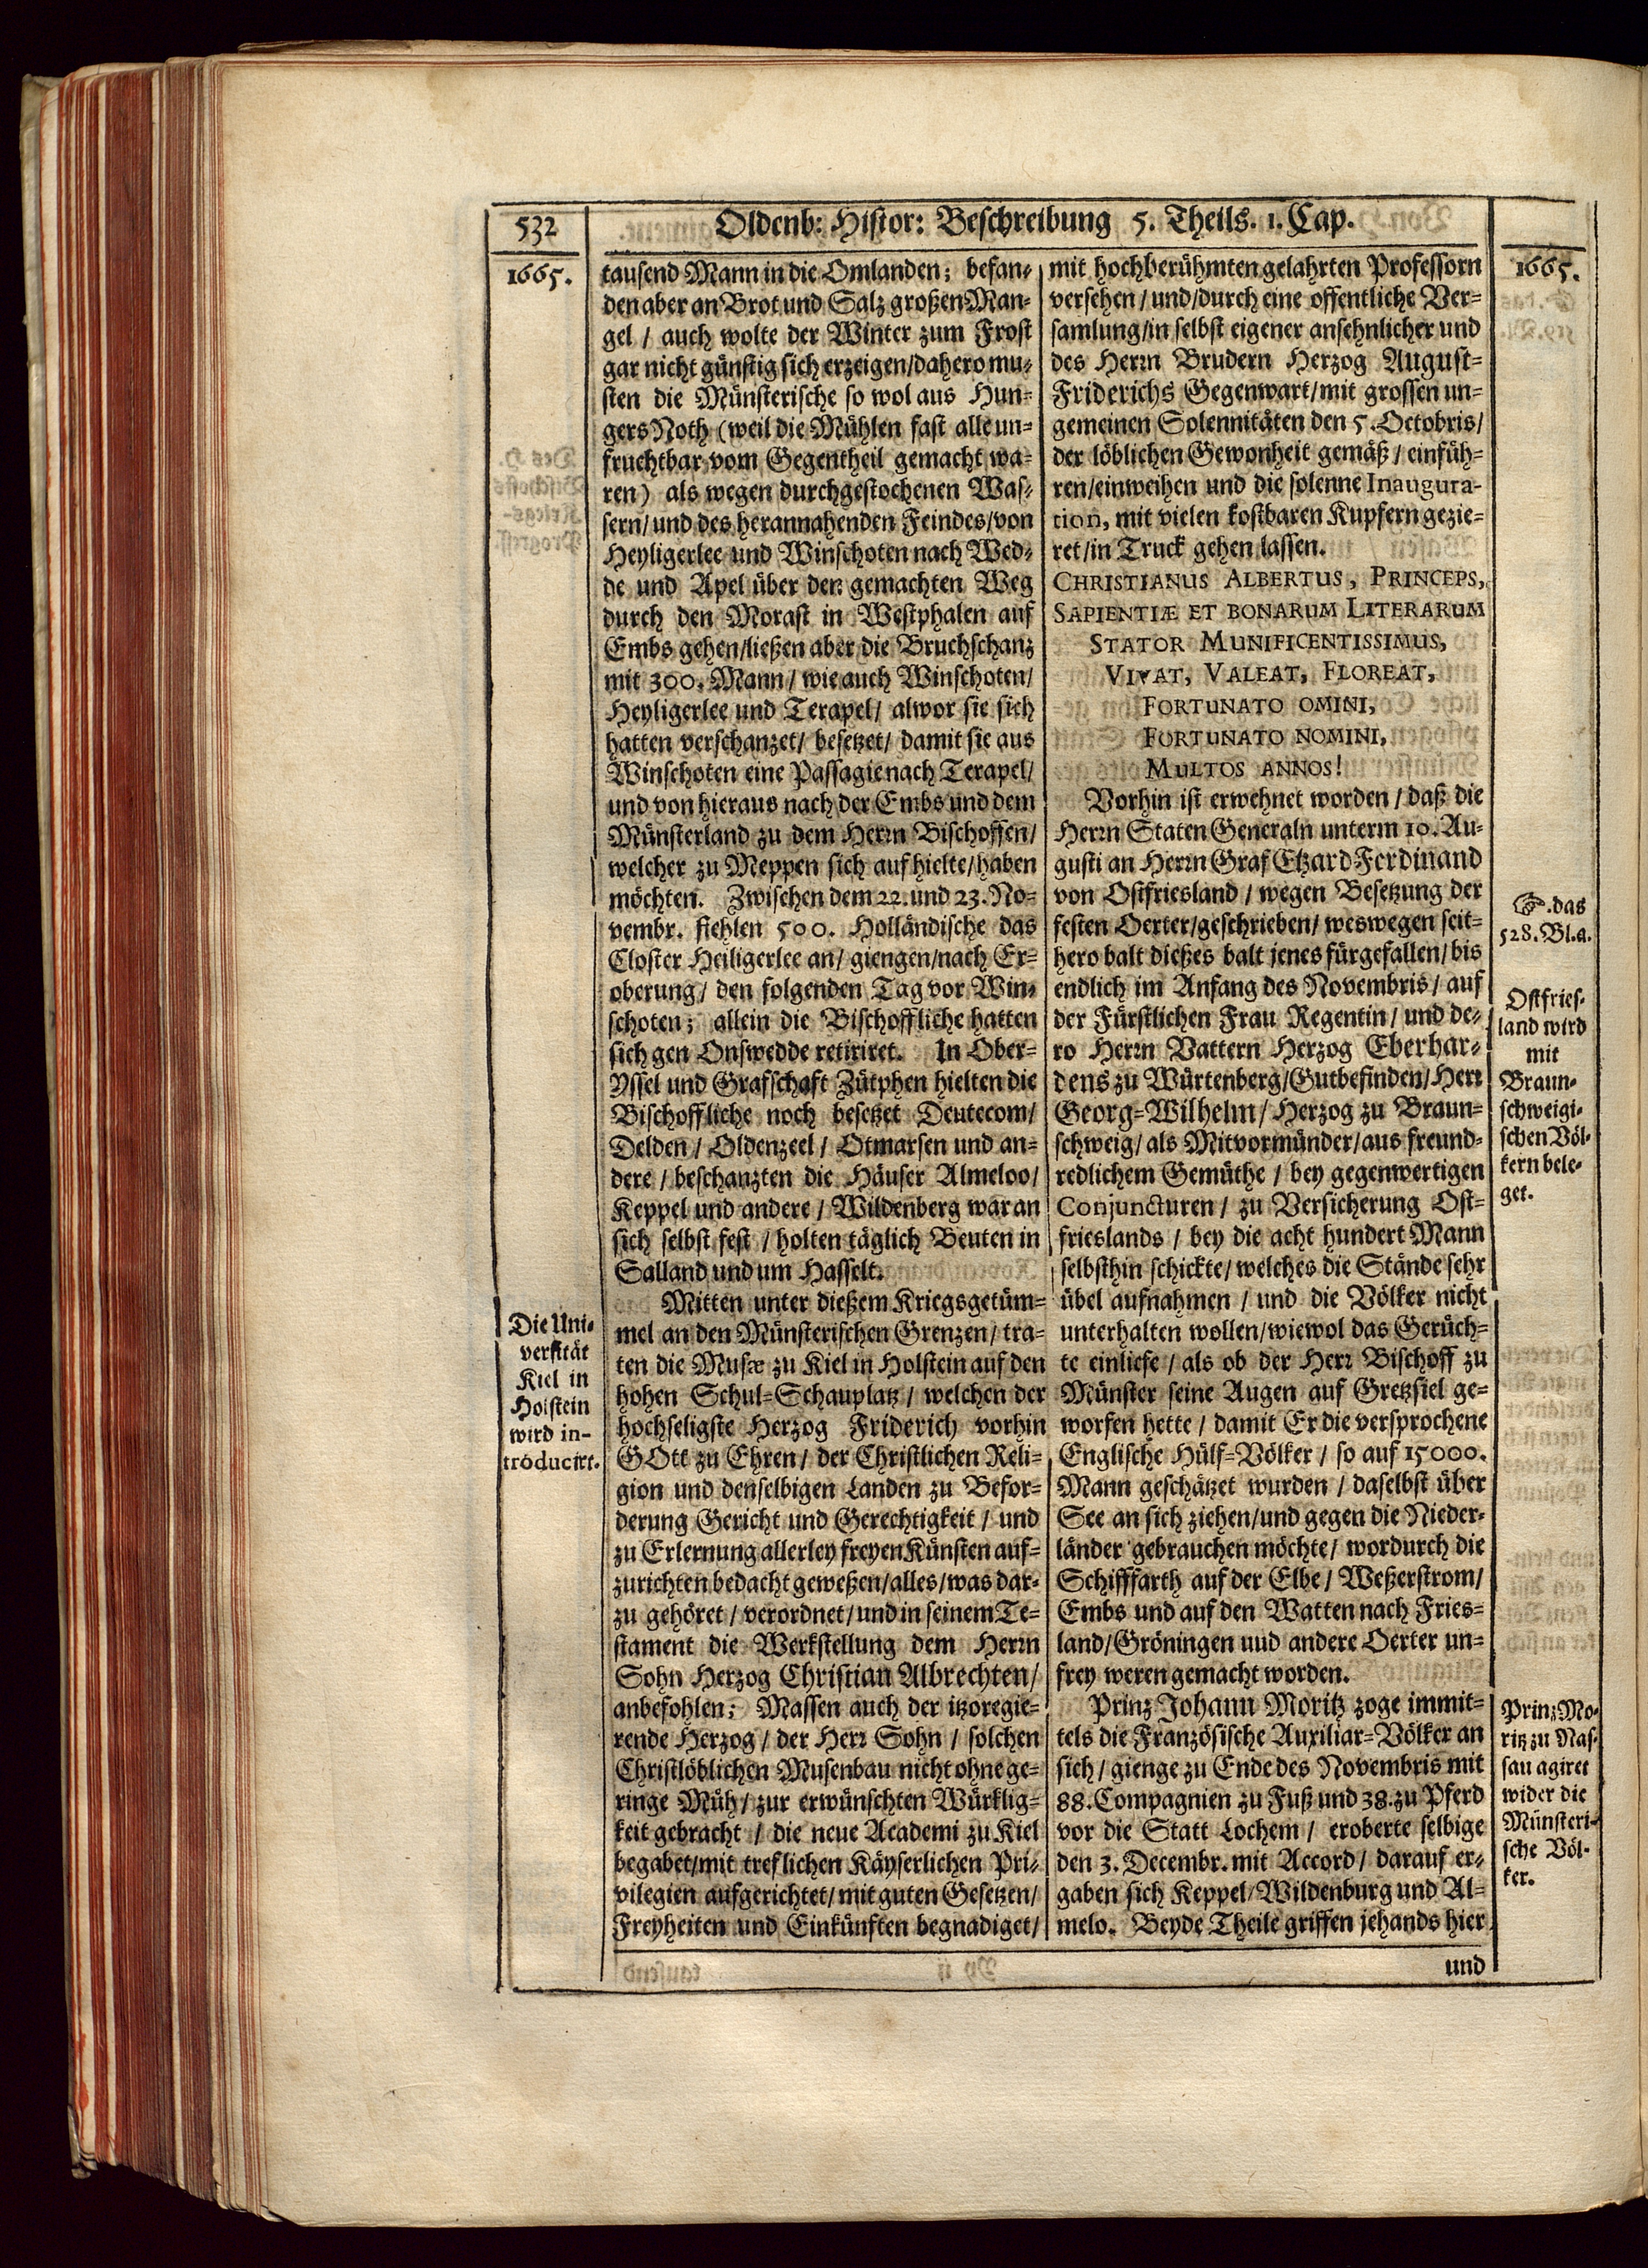 532
Oldenb: Histor: Beschreibung 5. Theils. 1. Cap.
1665.
tausend Mann in die Omlanden; befan-
den aber an Brot und Salz großen Man-
gel / auch wolte der Winter zum Frost
gar nicht günstig sich erzeigen/dahero mu-
sten die Münsterische so wol aus Hun-
gers Noth (weil die Mühlen fast alle un-
fruchtbar vom Gegentheil gemacht wa-
ren) als wegen durchgestochenen Was-
sern/ und des herannahenden Feindes/von
Heyligerlee und Winschoten nach Wed-
de und Apel über den gemachten Weg
durch den Morast in Westphalen auf
Embs gehen/ließen aber die Bruchschanz
mit 300. Mann / wie auch Winschoten/
Heyligerlee und Terapel/ alwor sie sich
hatten verschanzet/ besetzet/ damit sie aus
Winschoten eine Passagie nach Terapel/
und von hieraus nach der Embs und dem
Münsterland zu dem Herrn Bischoffen/
welcher zu Meppen sich aufhielte/haben
möchten. Zwischen dem 22. und 23. No-
vembr. fiehlen 500. Holländische das
Closter Heiligerlee an/ giengen/nach Er-
oberung / den folgenden Tag vor Win-
schoten; allein die Bischoffliche hatten
sich gen Onswedde retiriret. In Ober-
Yssel und Grafschaft Zütphen hielten die
Bischoffliche noch besetzet Deutecom/
Delden / Oldenzeel / Otmarsen und an-
dere / beschanzten die Häuser Almeloo/
Keppel und andere / Wildenberg war an
sich selbst fest / holten täglich Beuten in
Salland und um Hasselt.
Die Uni-
versität
Kiel in
Holstein
wird in-
troducirt.
Mitten unter dießem Kriegsgetüm-
mel an den Münsterischen Grenzen/ tra-
ten die Musæ zu Kiel in Holstein auf den
hohen Schul-Schauplatz / welchen der
hochseligste Herzog Friderich vorhin
GOtt zu Ehren / der Christlichen Reli-
gion und denselbigen Landen zu Befor-
derung Gericht und Gerechtigkeit / und
zu Erlernung allerley freyen Künsten auf-
zurichten bedacht geweßen/alles/was dar-
zu gehöret / verordnet/ und in seinem Te-
stament die Werkstellung dem Herrn
Sohn Herzog Christian Albrechten/
anbefohlen; Massen auch der itzoregie-
rende Herzog / der Herr Sohn / solchen
Christlöblichen Musenbau nicht ohne ge-
ringe Müh / zur erwünschten Würklig-
keit gebracht / die neue Academi zu Kiel
begabet/mit treflichen Käyserlichen Pri-
vilegien aufgerichtet/ mit guten Gesetzen/
Freyheiten und Einkünften begnadiget/
1665.
mit hochberühmten gelahrten Professorn
versehen / und/durch eine offentliche Ver-
samlung/in selbst eigener ansehnlicher und
des Herrn Brudern Herzog August-
Friderichs Gegenwart/mit grossen un-
gemeinen Solennitäten den 5. Octobris/
der löblichen Gewonheit gemäß / einfüh-
ren/einweihen und die solenne Inaugura-
tion, mit vielen kostbaren Kupfern gezie-
ret/in Truck gehen lassen.
CHRISTIANUS ALBERTUS, PRINCEPS,
SAPIENTIÆ ET BONARUM LITERARUM
STATOR MUNIFICENTISSIMUS,
VIVAT, VALEAT, FLOREAT,
FORTUNATO OMINI,
FORTUNATO NOMINI,
MULTOS ANNOS!
Vorhin ist erwehnet worden / daß die
Herrn Staten Generaln unterm 10. Au-
gusti an Herrn Graf Etzard Ferdinand
von Ostfriesland / wegen Besetzung der
festen Oerter/geschrieben/ weswegen seit-
hero balt dießes balt jenes fürgefallen/ bis
endlich im Anfang des Novembris / auf
der Fürstlichen Frau Regentin / und de-
ro Herrn Vattern Herzog Eberhar-
dens zu Würtenberg/Gutbefinden/Herr
Georg-Wilhelm/ Herzog zu Braun-
schweig/ als Mitvormünder/aus freund-
redlichem Gemüthe / bey gegenwertigen
Conjuncturen / zu Versicherung Ost-
frieslands / bey die acht hundert Mann
selbsthin schickte/ welches die Stände sehr
übel aufnahmen / und die Völker nicht
unterhalten wollen/wiewol das Gerüch-
te einliefe / als ob der Herr Bischoff zu
Münster seine Augen auf Gretzsiel ge-
worfen hette / damit Er die versprochene
Englische Hülf-Völker / so auf 15000.
Mann geschätzet wurden / daselbst über
See an sich ziehen/und gegen die Nieder-
länder gebrauchen möchte/ wordurch die
Schifffarth auf der Elbe/ Weßerstrom/
Embs und auf den Watten nach Fries-
land/Gröningen uud andere Oerter un-
frey weren gemacht worden.
Prinz Johann Moritz zoge immit-
tels die Französische Auxiliar-Völker an
sich / gienge zu Ende des Novembris mit
88. Compagnien zu Fuß und 38. zu Pferd
vor die Statt Lochem / eroberte selbige
den 3. Decembr. mit Accord / darauf er-
gaben sich Keppel/Wildenburg und Al-
melo. Beyde Theile griffen jehands hier
☞. das
528. Bl. a.
Ostfries-
land wird
mit
Braun-
schweigi-
schen Völ-
kern bele-
get.
Prinz Mo-
ritz zu Nas-
sau agiret
wider die
Münsteri-
sche Völ-
ker.
und